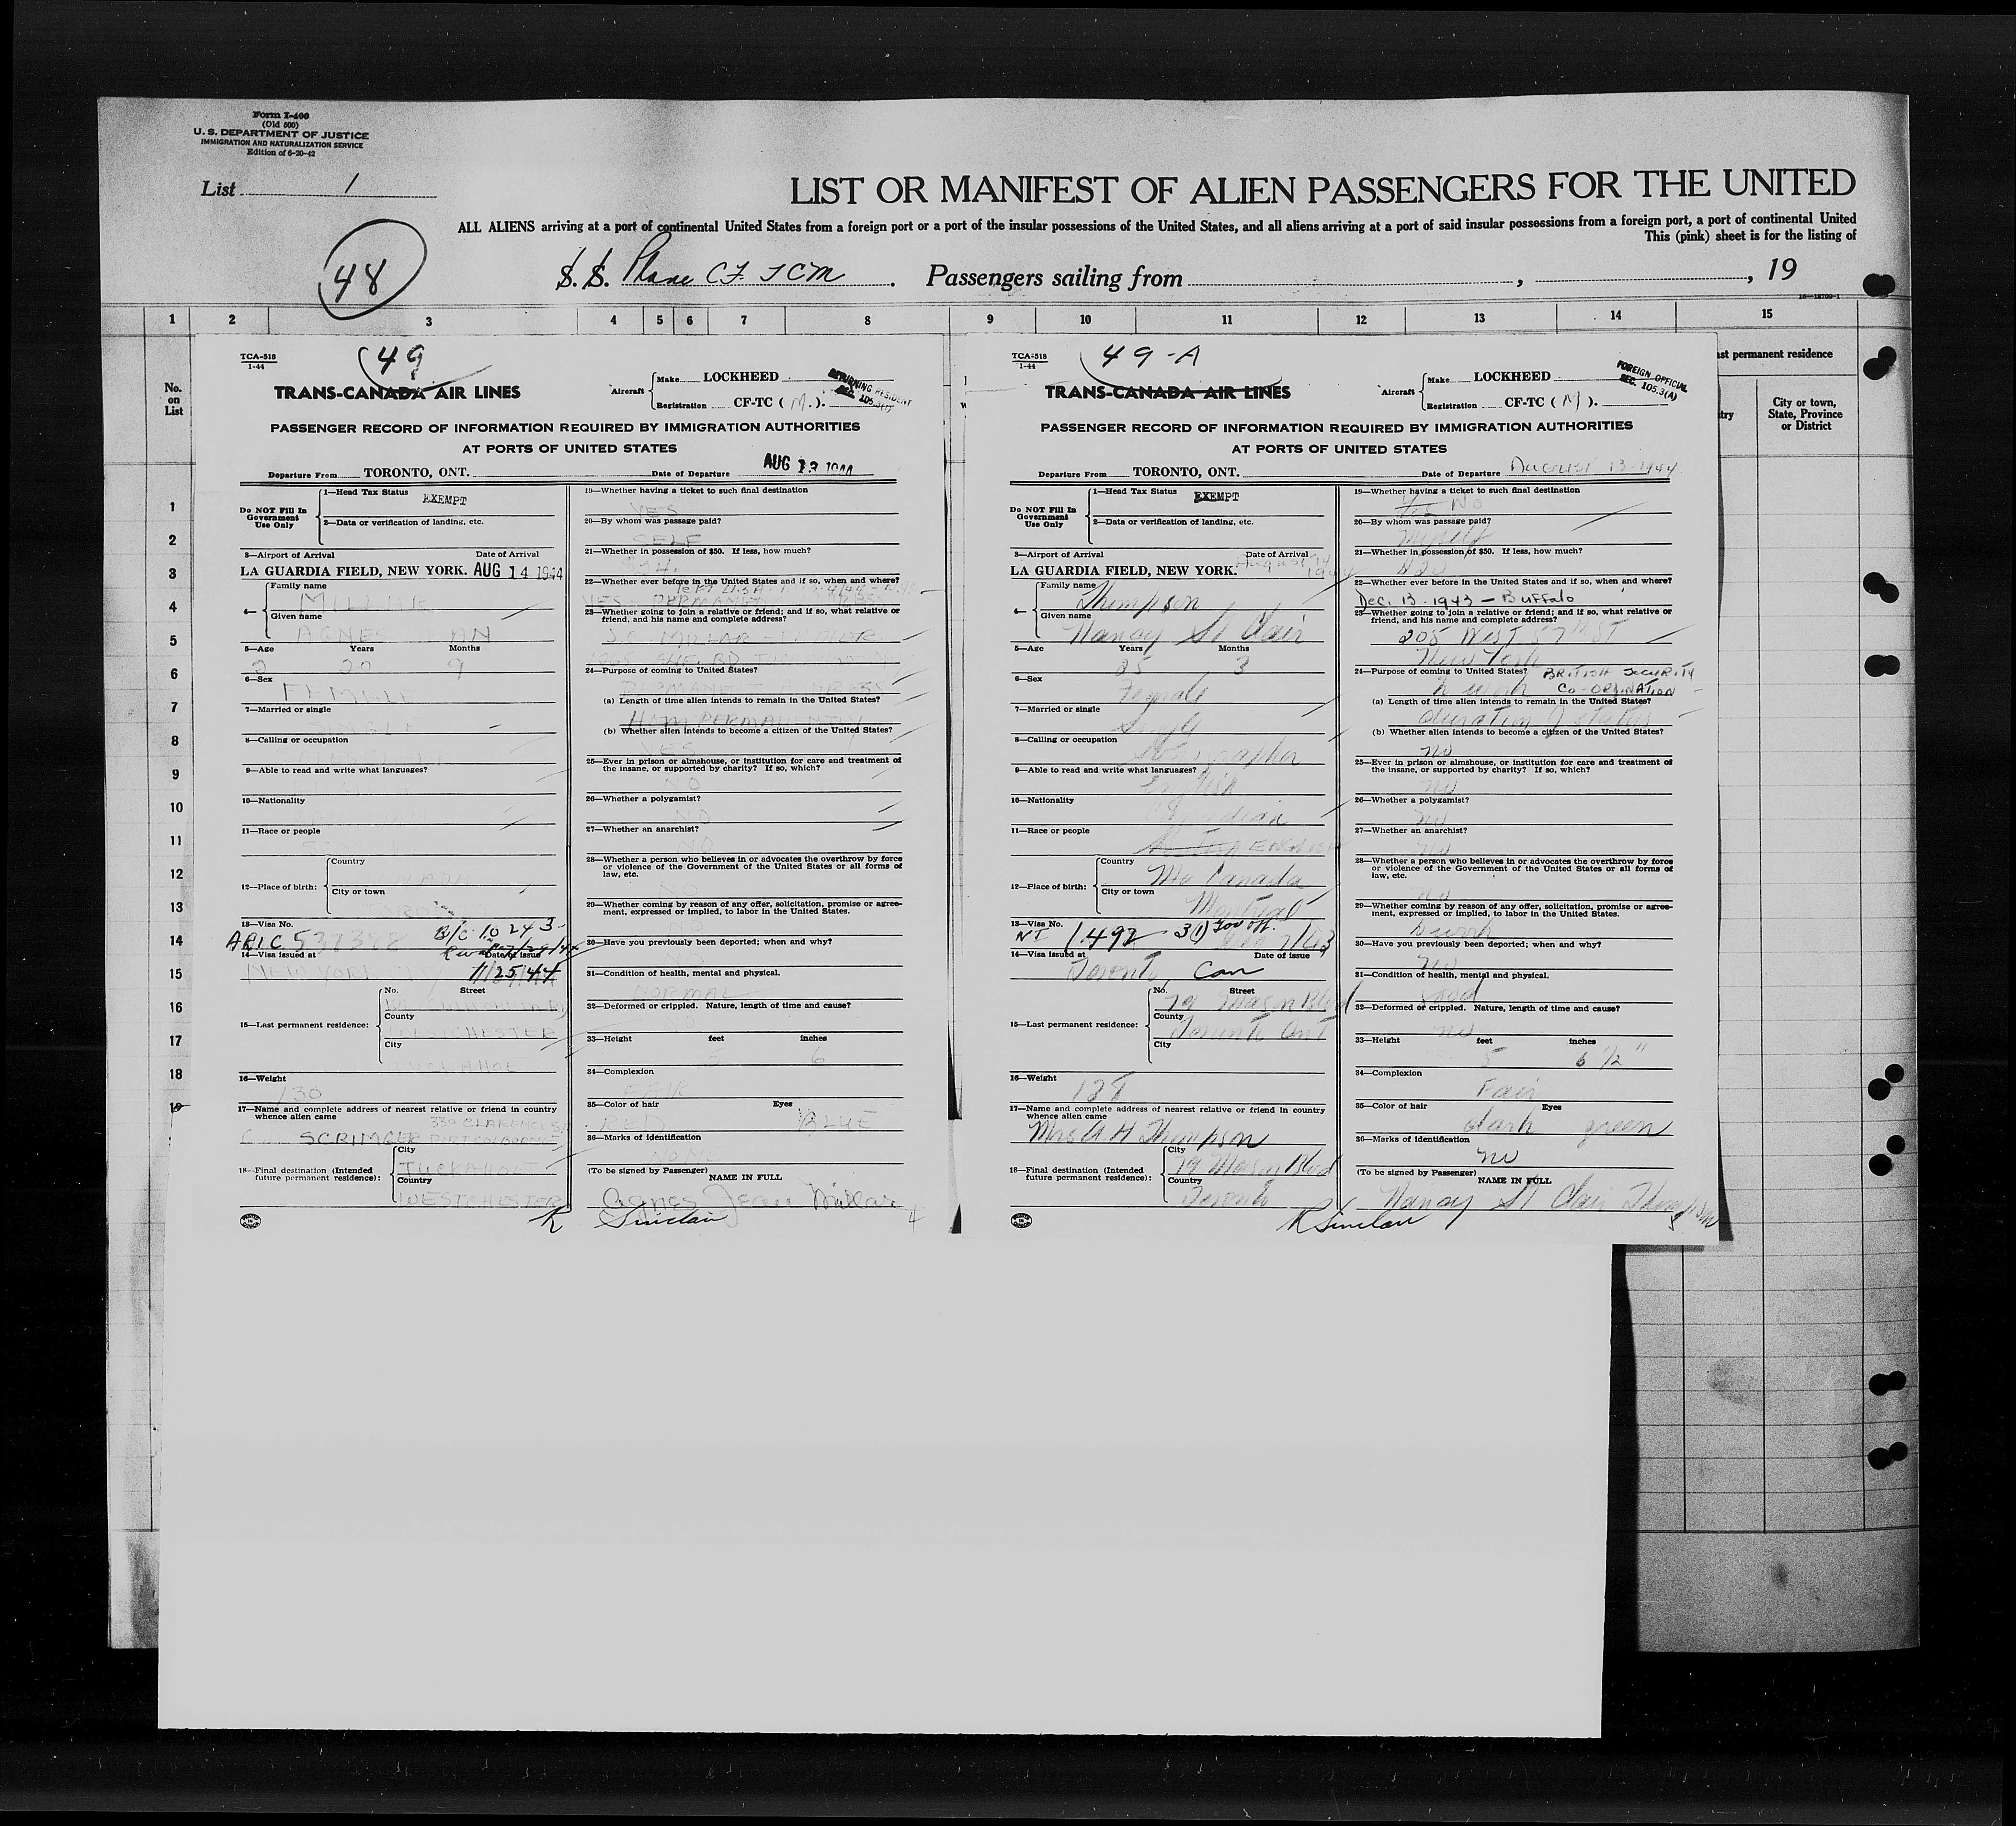 Form I-400
(Old 500)
U. S. DEPARTMENT OF JUSTICE
IMMIGRATION AND NATURALIZATION SERVICE
Edition of 6-20-42
List 1
LIST OR MANIFEST OF ALIEN PASSENGERS FOR THE UNITED
ALL ALIENS arriving at a port of continental United States from a foreign port or a port of the insular possessions of the United States, and all aliens arriving at a port of said insular possessions from a foreign port, a port of continental United
This (pink) sheet is for the listing of
48
S. S. Plane CF TCM . Passengers sailing from , , 19
16—18700-1
1 2 3 4 5 6 7 8 9 10 11 12 13 14 15
No. on List
ast permanent residence
try
City or town, State, Province or District
1
2
3
4
5
6
7
8
9
10
11
12
13
14
15
16
17
18
19
TCA-518
1-44
49
TRANS-CANADA AIR LINES
Aircraft Make LOCKHEED
Registration CF-TC ( M. ).
RETURNING RESIDENT
SEC. 105.3(f)
PASSENGER RECORD OF INFORMATION REQUIRED BY IMMIGRATION AUTHORITIES
AT PORTS OF UNITED STATES
Departure From TORONTO, ONT. Date of Departure AUG 13 1944
Do NOT Fill In Government Use Only
1—Head Tax Status EXEMPT
2—Data or verification of landing, etc.
3—Airport of Arrival Date of Arrival
LA GUARDIA FIELD, NEW YORK. AUG 14 1944
4— Family name
Given name
5—Age Years Months
20 9
6—Sex
7—Married or single
8—Calling or occupation
9—Able to read and write what languages?
10—Nationality
11—Race or people
12—Place of birth: Country
City or town
13—Visa No.
ARIC 538388 B/C 10243
14—Visa issued at Date of issue
NEW YORK 11/25/44
15—Last permanent residence: No. Street
County
WESTCHESTER
City
TUCKAHOE
16—Weight
130
17—Name and complete address of nearest relative or friend in country whence alien came
330 CLARENCE ST
SCRIMGER PORT COLBORNE
18—Final destination (Intended future permanent residence): City
TUCKAHOE
Country
WESTCHESTER
19—Whether having a ticket to such final destination
YES
20—By whom was passage paid?
SELF
21—Whether in possession of $50. If less, how much?
22—Whether ever before in the United States and if so, when and where?
YES
23—Whether going to join a relative or friend; and if so, what relative or friend, and his name and complete address?
MILLAR
24—Purpose of coming to United States?
PERMANENT
(a) Length of time alien intends to remain in the United States?
PERMANENTLY
(b) Whether alien intends to become a citizen of the United States?
YES
25—Ever in prison or almshouse, or institution for care and treatment of the insane, or supported by charity? If so, which?
NO
26—Whether a polygamist?
NO
27—Whether an anarchist?
NO
28—Whether a person who believes in or advocates the overthrow by force or violence of the Government of the United States or all forms of law, etc.
NO
29—Whether coming by reason of any offer, solicitation, promise or agreement, expressed or implied, to labor in the United States.
30—Have you previously been deported; when and why?
31—Condition of health, mental and physical.
NORMAL
32—Deformed or crippled. Nature, length of time and cause?
33—Height feet inches
5 6
34—Complexion
FAIR
35—Color of hair Eyes
RED BLUE
36—Marks of identification
NONE
(To be signed by Passenger) NAME IN FULL
Agnes Jean Millar
R Sinclair 4
TCA-518
1-44
49-A
TRANS-CANADA AIR LINES
Aircraft Make LOCKHEED
Registration CF-TC ( M ).
FOREIGN OFFICIAL
SEC. 105.3(A)
PASSENGER RECORD OF INFORMATION REQUIRED BY IMMIGRATION AUTHORITIES
AT PORTS OF UNITED STATES
Departure From TORONTO, ONT. Date of Departure August 13-1944
Do NOT Fill In Government Use Only
1—Head Tax Status EXEMPT
2—Data or verification of landing, etc.
3—Airport of Arrival Date of Arrival
LA GUARDIA FIELD, NEW YORK. August 14 1944
4— Family name
Thompson
Given name
Nancy St Clair
5—Age Years Months
25 3
6—Sex
Female
7—Married or single
Single
8—Calling or occupation
Stenographer
9—Able to read and write what languages?
English
10—Nationality
Canadian
11—Race or people
English
12—Place of birth: Country
Canada
City or town
Montreal
13—Visa No.
NI 1492 3(1) Gov off.
14—Visa issued at Date of issue
Toronto Can
15—Last permanent residence: No. Street
79 Mason Blvd
County
Toronto Ont
City
16—Weight
128
17—Name and complete address of nearest relative or friend in country whence alien came
Mrs A H Thompson
18—Final destination (Intended future permanent residence): City
79 Mason Blvd
Country
Toronto
19—Whether having a ticket to such final destination
Yes No
20—By whom was passage paid?
Myself
21—Whether in possession of $50. If less, how much?
$20
22—Whether ever before in the United States and if so, when and where?
Dec. 13. 1943 — Buffalo
23—Whether going to join a relative or friend; and if so, what relative or friend, and his name and complete address?
205 West 57th ST
New York
24—Purpose of coming to United States? BRITISH SECURITY
to work CO-ORDINATION
(a) Length of time alien intends to remain in the United States?
duration of status
(b) Whether alien intends to become a citizen of the United States?
no
25—Ever in prison or almshouse, or institution for care and treatment of the insane, or supported by charity? If so, which?
no
26—Whether a polygamist?
no
27—Whether an anarchist?
no
28—Whether a person who believes in or advocates the overthrow by force or violence of the Government of the United States or all forms of law, etc.
no
29—Whether coming by reason of any offer, solicitation, promise or agreement, expressed or implied, to labor in the United States.
30—Have you previously been deported; when and why?
no
31—Condition of health, mental and physical.
good
32—Deformed or crippled. Nature, length of time and cause?
no
33—Height feet inches
5 6 1/2"
34—Complexion
Fair
35—Color of hair Eyes
dark green
36—Marks of identification
no
(To be signed by Passenger) NAME IN FULL
Nancy St Clair Thompson
R Sinclair 5